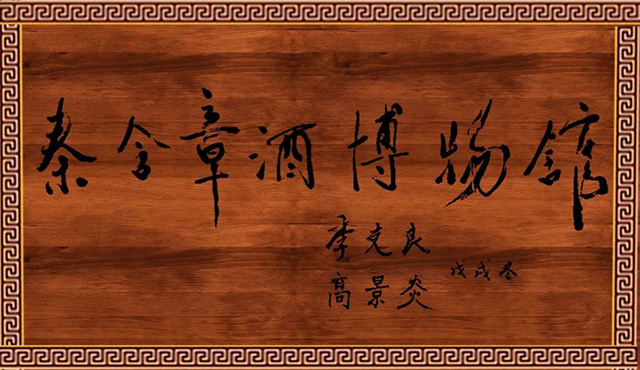 秦含章酒博物馆
季克良
高景炎
戊戌冬